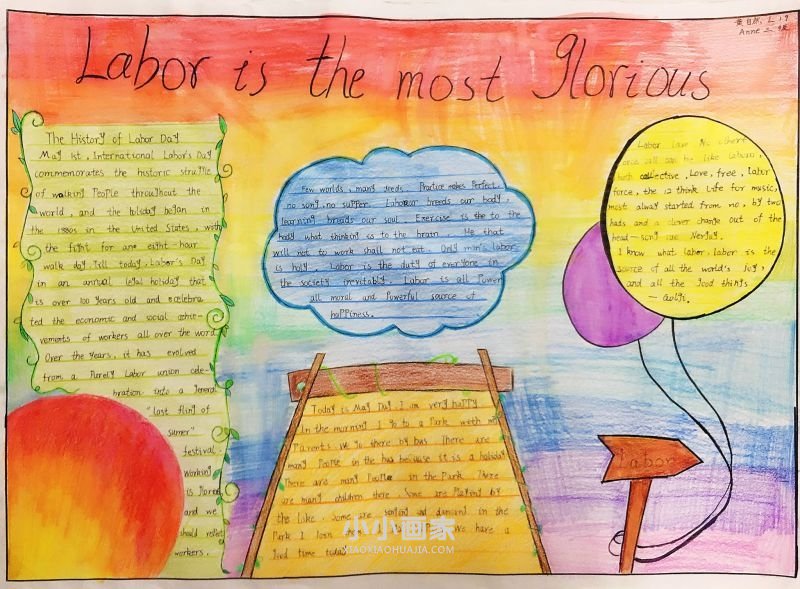 Labor is the most glorious
Anne
The History of Labor Day
May 1st, International Labor's Day
commemorates the historic struggle
of walking People throughout the
world, and the holiday began in
the 1880s in the United States, with
the fight for an eight-hour
walk day. Till today, Labor's Day
in an annual legal holiday that
is over 100 years old and celebra
ted the economic and social achie-
vements of workers all over the word
Over the Years, it has evolved
from a Purely Labor union cele-
bration into a general
"last fling of
sumer"
festival.
Working
is
and we
should reflet
workers.
Few worlds, many deeds. Practice makes Perfect.
no song, no supper. Labour breeds our body,
learning breads our soul. Exercise is the to the
body what thinking is to the brain. He that
will not to work shall not eat. Only man's labor
is holy. Labor is the duty of everyone in
the society inevitably. Labor is all Power
all moral and Powerful source of
haPPiness.
Labor love No others
force all can be like labour,
both collective, Love, free, Labor
force, the 12 think Life for music,
most alway started from no, by two
hads and a clever change out of the
head-song
I know what labor, labor is the
source of all the world's joy,
and all the good things
Today is May Day. I am very haPPy
In the morning I go to a Park with my
Parents we go there by bus. There are
many PeoPle in the bus because it is a holiday
There are many PeoPle in the Park. There
are many children there. Some are Playing by
the like. Some are singing and dancing in the
Park I
We have a
good time today
Labor
小小画家
XIAOXIAOHUAJIA.COM